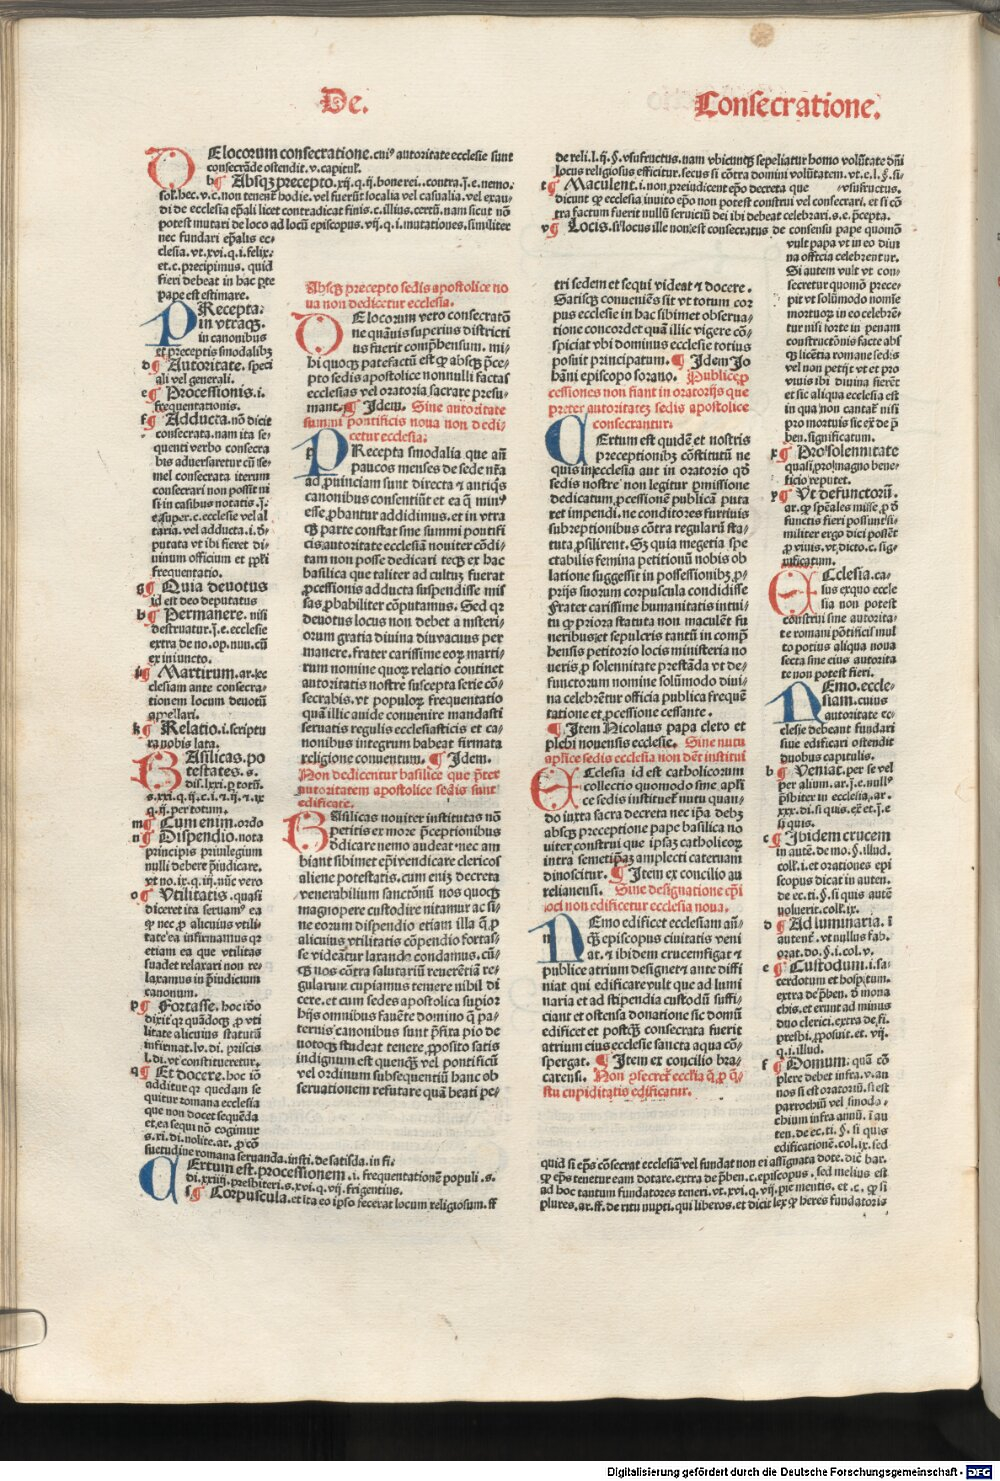 De. Consecratione.
DElocorum consecratione. cuiꝰ autoritate ecclesie sunt
consecrãde ostendit. v. capitul'.
b¶ Absqꝫ precepto. xij. q. ij. bone rei. .contra. j. e. nemo.
sol. hec. v. c. non tenent hodie. vel fuerũt localia vel casualia. vel exau-
di de ecclesia ep̃ali licet contradicat finis. c. illius. certũ. nam sicut nõ
potest mutari de loco ad locũ episcopus. vij. q. i. mutationes. similiter
nec fundari ep̃alis ec-
clesia. vt. xvi. q. i. felix.
et. c. precipimus. quid
fieri debeat in hac p̱te
pape est estimare.
PRecepta.
in vtraqꝫ.
in canonibus
et preceptis sinodalibꝫ
d¶ Autoritate. speci
ali vel generali.
e¶ Processionis. i.
frequentationis.
f¶ Adducta. nõ dicit
consecrata. nam ita se-
quenti verbo consecra
bis aduersaretur cũ se-
mel consecrata iterum
consecrari non possit ni
si in casibus notatis. j.
e. super. c. ecclesie vel al
taria. vel adducta. i. d̾-
putata vt ibi fieret di-
uinum officium et pp̃ſi
frequentatio.
g¶ Quia deuotus
id est deo deputatus
h¶ Permanere. nisi
destruatur. j. e. ecclesie
extra de no. op. nun. cũ
ex iniuncto.
i¶ Martirum. ar. ec-
clesiam ante consecra-
tionem locum deuotũ
appellari.
k¶ Relatio. i. scriptu
ra nobis lata.
BAsilicas. po
testates. s.
dis. lxxi. ꝑ totũ.
s. xxi. q. ij. c. i. ⁊. ij. ⁊. ix
q. ij. per totum.
m¶ Cum enim. ordo
n¶ Dispendio. nota
principis priuilegium
nulli debere p̃iudicare.
vt no. ix. q. iij. nũc vero
o¶ Vtilitatis. quasi
diceret ita seruamꝰ ea
ꝙ nec ꝓ alicuius vtili-
tate ea infirmamus qꝛ
etiam ea que vtilitas
suadet relaxari non re-
laxamus in p̃iudicium
canonum.
p¶ Fortasse. hoc iõo
dixit qꝛ quãdoqꝫ ꝓ vti
litate alicuius statutũ
infirmat. lv. di. priscis
l. di. vt constitueretur.
q¶ Et docere. hoc iõ
additur qꝛ quedam se
quitur romana ecclesia
que non docet sequẽda
et ea sequi nõ cogimur
s. xi. di. nolite. ar. ꝓ cõ
suetudine romana seruanda. insti. de satisda. in fi.
CErtum est. processionem. i. frequentationẽ populi. s.
di. xxiij. presbiteri. s. xvi. q. vij. frigentius.
s¶ Corpuscula. et ita eo ipso fecerat locum religiosum. ff
Absqꝫ precepto sedis apostolice no
ua non dedicetur ecclesia.
DElocorum vero consecratõ
ne quãuis superius districti
us fuerit comp̃hensum. mi-
hi quoqꝫ patefactũ est ꝙ absqꝫ p̃ce-
pto sedis apostolice nonnulli factas
ecclesias vel oratoria sacrare presu-
mant. ¶ Idem. Sine autoritate
summi pontificis noua non dedi-
cetur ecclesia.
PRecepta sinodalia que añ
paucos menses de sede nr̃a
ad ꝓuinciam sunt directa ⁊ antiqꝭ
canonibus consentiũt et ea q̃ minꝰ
esse ꝓbantur addidimus. et in vtra
qꝫ parte constat sine summi pontifi
cis autoritate ecclesiã nouiter cõdi-
tam non posse dedicari tecqꝫ ex hac
basilica que taliter ad cultuꝫ fuerat
ꝓcessionis adducta suspendisse mis
sas ꝓbabiliter cõputamus. Sed qꝛ
deuotus locus non debet a misteri-
orum gratia diuina diu vacuus per
manere. frater carissime eoꝝ marti-
rum nomine quoꝝ relatio continet
autoritatis nostre suscepta serie cõ-
secrabis. vt populoꝝ frequentatio
quã illic auide conuenire mandasti
seruatis regulis ecclesiasticis et ca-
nonibus integrum habeat firmata
religione conuentum. ¶ Idem.
Non dedicentur basilice que p̃ter
autoritatem apostolice sedis sunt
edificate.
BAsilicas nouiter institutas nõ
petitis ex more p̃ceptionibus
dedicare nemo audeat. nec am
biant sibimet ep̃i vendicare clericos
aliene potestatis. cum enim decreta
venerabilium sanctõnũ nos quoqꝫ
magnopere custodire nitamur ac si-
ne eorum dispendio etiam illa q̃ ꝓ
alicuius vtilitatis cõpendio fortas-
se videãtur laxanda condamus. cũ-
qꝫ nos cõtra salutariũ reuerẽtiã re-
gularum cupiamus temere nihil di
cere. et cum sedes apostolica supior
hijs omnibus fauẽte domino q̃ pa-
ternis canonibus sunt p̃fixa pio de
uotoqꝫ studeat tenere ꝓposito satis
indignum est quenqꝫ vel pontificũ
vel ordinum subsequentiũ hanc ob
seruationem refutare quã beati pe-
tri sedem et sequi videat ⁊ docere.
Satisqꝫ conueniẽs sit vt totum cor
pus ecclesie in hac sibimet obserua-
tione concordet quã illic vigere cõ-
spiciat vbi dominus ecclesie totius
posuit principatum. ¶ Idem Jo
hãni episcopo sorano. Publice ꝓ
cessiones non fiant in oratorijs que
preter autoritateꝫ sedis apostolice
consecrantur.
CErtum est quidẽ et nostris
preceptionibꝫ cõstitutũ ne
quis in ecclesia aut in oratorio qd̾
sedis nostre non legitur ꝑmissione
dedicatum ꝓcessionẽ publicã puta
ret impendi. ne conditores furtiuis
subreptionibus cõtra regularũ sta-
tuta ꝓsilirent. Sꝫ quia megetia spe
ctabilis femina petitionũ nobis ob
latione suggessit in possessionibꝫ ꝓ-
prijs suorum corpuscula condidisse
frater carissime humanitatis intui-
tu ꝙ priora statuta non maculẽt fu
neribus et sepulcris tantũ in comp̃
hensis petitorio locis ministeria no
ueris ꝓ solennitate prestãda vt de-
functorum nomine solũmodo diui-
na celebrẽtur officia publica frequẽ
tatione et ꝓcessione cessante.
¶ Item Nicolaus papa clero et
plebi nouensis ecclesie. Sine nutu
apl̃ice sedis ecclesia non dẽt institui
ECclesia id est catholicorum
collectio quomodo sine apl̃i
ce sedis instituet̃ nutu quan-
do iuxta sacra decreta nec ip̃a debꝫ
absqꝫ preceptione pape basilica no
uiter construi que ipsaꝫ catholicoꝝ
intra semetip̃aꝫ amplecti cateruam
dinoscitur. ¶ Item ex concilio au
relianensi. Sine designatione ep̃i
loci non edificetur ecclesia noua.
NEmo edificet ecclesiam añ-
qꝫ episcopus ciuitatis veni
at. ⁊ ibidem crucem figat ⁊
publice atrium designet ⁊ ante diffi
niat qui edificare vult que ad lumi
naria et ad stipendia custodũ suffi-
ciant et ostensa donatione sic domũ
edificet et postqꝫ consecrata fuerit
atrium eius ecclesie sancta aqua cõ-
spergat. ¶ Item ex concilio bra-
carensi. Non ꝯsecret̃ eccl̃ia q̃ ꝓ q̃-
stu cupiditatis edificatur.
de reli. l. ij. §. vsufructus. nam vbicunqꝫ sepeliatur homo volũtate dñi
locus religiosus efficitur. secus si cõtra domini volũtatem. vt. e. l. §. si-
t¶ Maculent. i. non preiudicent ep̃o decreta que vsufructus.
dicunt ꝙ ecclesia inuito ep̃o non potest construi vel consecrari. et si cõ
tra factum fuerit nullũ seruiciũ dei ibi debeat celebrari. s. e. p̃cepta.
v¶ Locis. si locus ille non est consecratus de consensu pape quomõ
vult papa vt in eo diui
na officia celebrentur.
Si autem vult vt con-
secretur quomõ prece-
pit vt solũmodo nomie
mortuoꝝ in eo celebrẽ-
tur nisi forte in penam
constructõnis facte abs
qꝫ licẽtia romane sedis
vel non petijt vt et pro
viuis ibi diuina fierẽt
et sic aliqua ecclesia est
in qua non cantat̃ nisi
pro mortuis sic ex̃ de p̃
ben. significatum.
x¶ Pro solennitate
quasi pro magno bene-
ficio reputet.
y¶ Vt defunctorũ.
ar. ꝙ sp̃eales misse ꝓ d̾
functis fieri possunt si-
militer ergo dici possẽt
ꝓ viuis. vt dicto. c. sig-
nificatum.
ECclesia. ca-
ius ex quo eccle
sia non potest
construi sine autorita-
te romani põtificis mul
to potius aliqua noua
secta sine eius autorita
te non potest fieri.
NEmo. eccle-
siam. cuius
autoritate ec-
clesie debeant fundari
siue edificari ostendit
duobus capitulis.
b¶ Veniat. per se vel
per alium. ar. j. e. nullꝰ
p̃sbiter in ecclesia. ar.
xxx. di. si quis. ex̃ et. j. e
si quis.
c¶ Ibidem crucem
in autẽ. de mo. §. illud.
coll'. i. et orationes epi
scopus dicat in auten.
de ec. ti. §. si quis autẽ
voluerit. col. ix.
d¶ Ad luminaria. ĩ
autent̃. vt nullus fab.
orat. do. §. i. col. v.
e¶ Custodum. i. sa-
cerdotum et hospitum.
extra de p̃ben. d̾ mona
chis. et erunt ad minus
duo clerici. extra de fi.
presbi. ꝓposuit. et. vij.
q. i. illud.
f¶ Domum. quã cõ
plere debet infra. v. an
nos si est oratoriũ. si est
parrochiũ vel sinoda-
chium infra annũ. ĩ au
ten. de ec. ti. §. si quis
edificationẽ. col. ix. sed
quid si ep̃s cõsecrat ecclesiã vel fundat non ei assignata dote. dic̃ bar.
ꝙ ep̃s tenetur eam dotare. extra de p̃ben. c. episcopus. sed melius est
ad hoc tantum fundatores teneri. vt. xvi. q. vij. pie mentis. et. c. ꝙ si
plures. ar. ff. de ritu nupti. qui liberos. et dicit lex ꝙ heres fundatoris
Digitalisierung gefördert durch die Deutsche Forschungsgemeinschaft - DFG